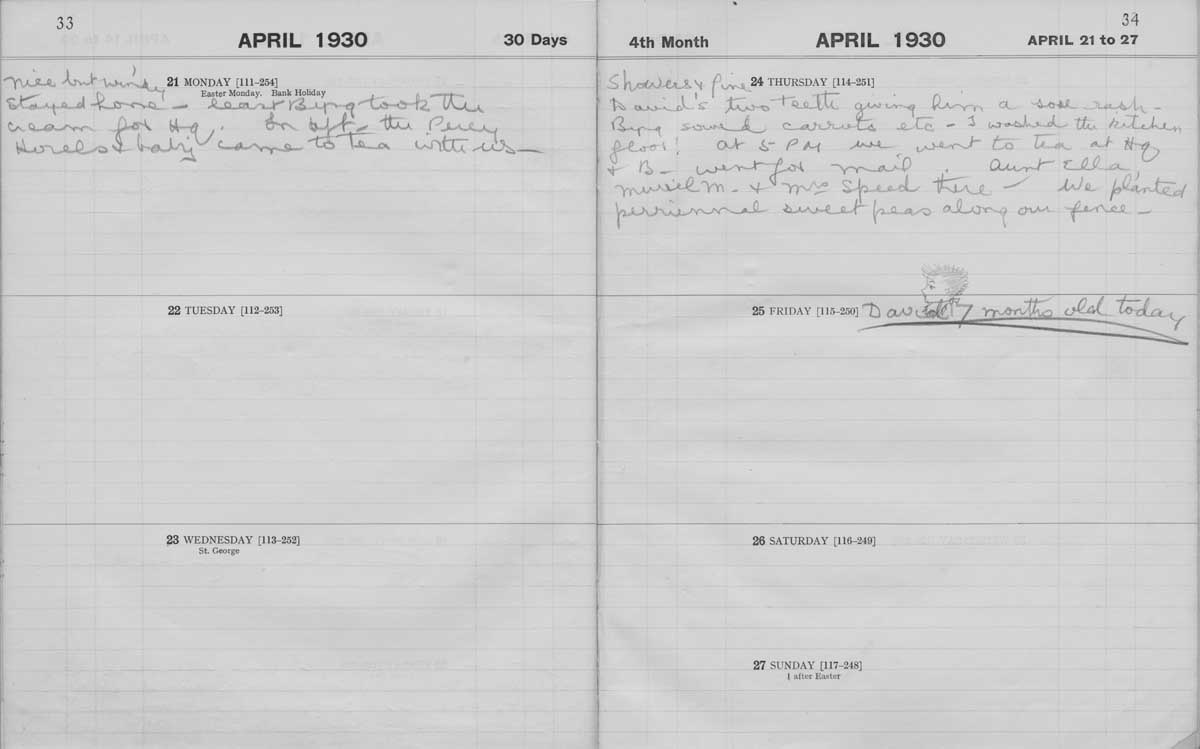 33
APRIL 1930
30 Days
nice but windy 21 MONDAY [111–254]
Easter Monday. Bank Holiday
Stayed home – least Byng took the
cream for Hq. In aft – the Percy
Horels & baby came to tea with us –
22 TUESDAY [112–253]
23 WEDNESDAY [113–252]
St. George
34
4th Month
APRIL 1930
APRIL 21 to 27
Showers & fine 24 THURSDAY [114–251]
David's two teeth giving him a sore rash –
Byng sowed carrots etc – I washed the kitchen
floor! at 5 PM we went to tea at Hq
& B – went for mail. Aunt Ella,
Muriel M. & Mrs Speed there – We planted
perriennal sweet peas along our fence –
25 FRIDAY [115–250] David 7 months old today
26 SATURDAY [116–249]
27 SUNDAY [117–248]
1 after Easter